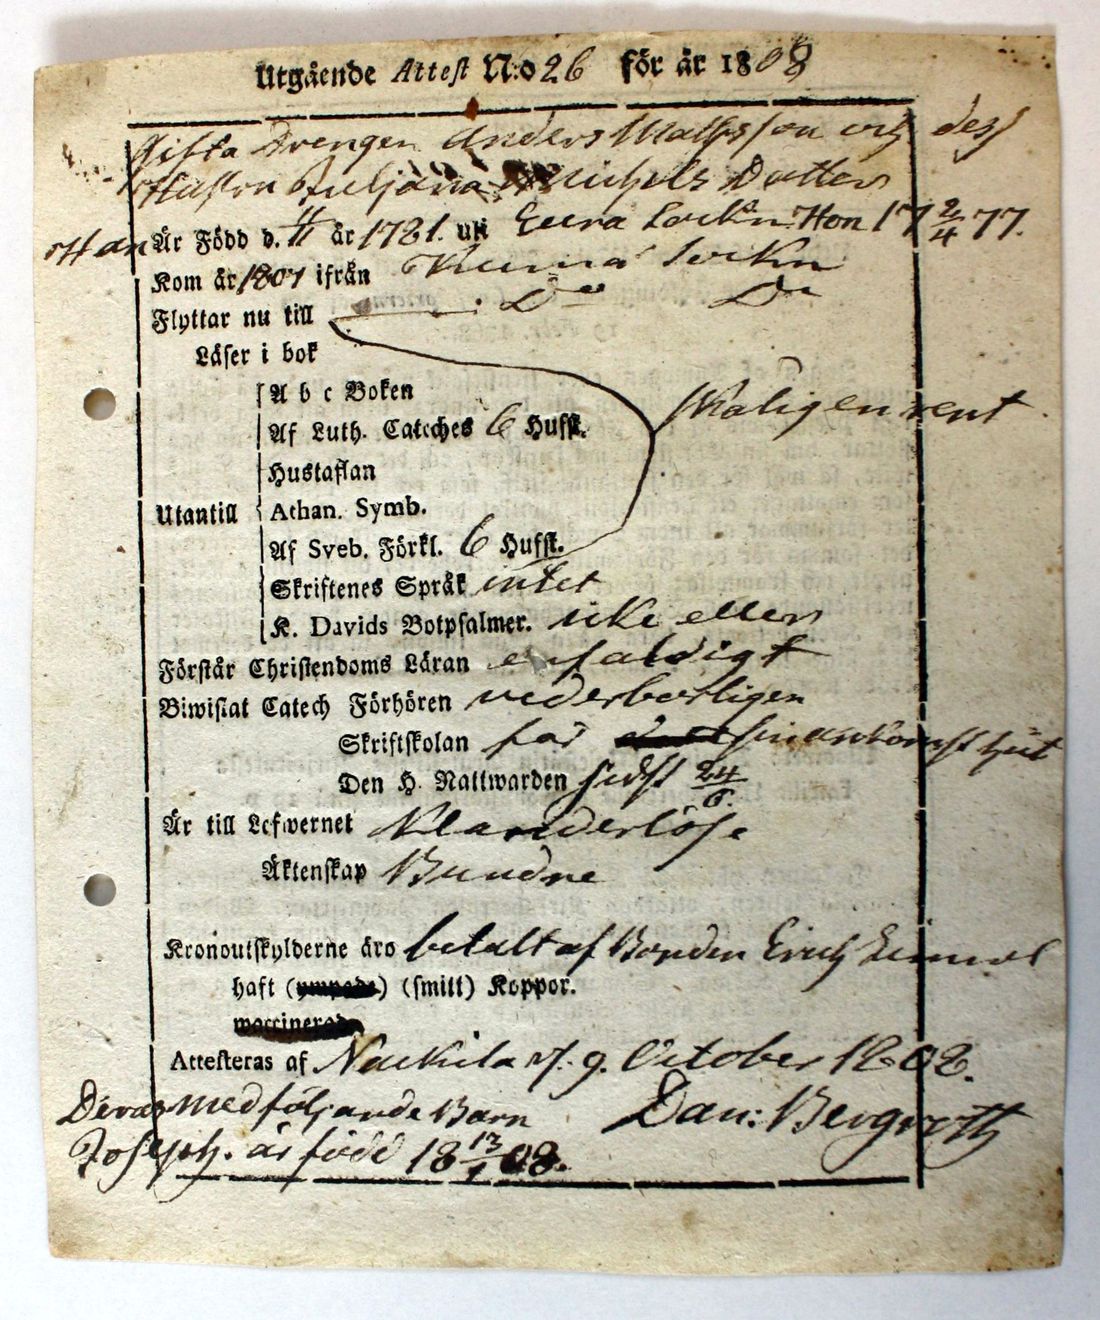 Utgående Attest N:o 26 för år 1808
Gifta Drengen Anders Matsson och dess
Hustru Juljana Michels Dotter
Han Är Född d. år 1781. uti Eura Sockn. Hon 17 2/4 77.
Kom år 1807 ifrån Kiuma Sockn
Flyttar nu till Do Do
Läser i bok
A b c Boken
Af Luth. Catches 6 Hufst. skaligen rent
Hustaflan
Utantill Athan. Symb.
Af Sveb. Förkl. 6 Hufst.
Skriftenes Språk intet
K. Davids Botpsalmer. icke eller
Förstår Christendoms Läran enfaldigt
Biwistat Catech Förhören vederbörligen
Skriftskolan sin ankomst hit
Den H. Nattwarden sidst 24/6.
Är till Lefwernet Klanderlöse
Äktenskap Bundne
Kronoutskylderne äro betalt af Bonden Erich
haft (ympade) (smitt) Koppor.
waccinerade
Attesteras af Nackila d. 9. October 1808.
Deras medföljande Barn Dan: Bergroth
Joseph. är född 18 13/1 08.